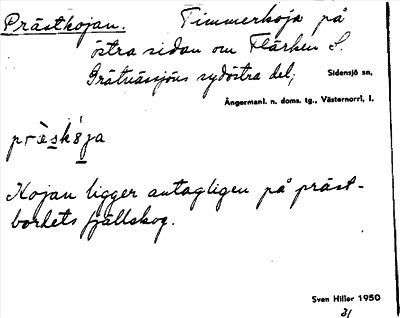 Prästkojan. Timmerkoja på
östra sidan om Flärken S.
Gråtnässjöns sydöstra del;
Sidensjö sn,
Ångermanl. n. doms. tg., Västernorrl, l.
Kojan ligger antagligen på präst-
bordets fjällskog.
Sven Hiller 1950
31